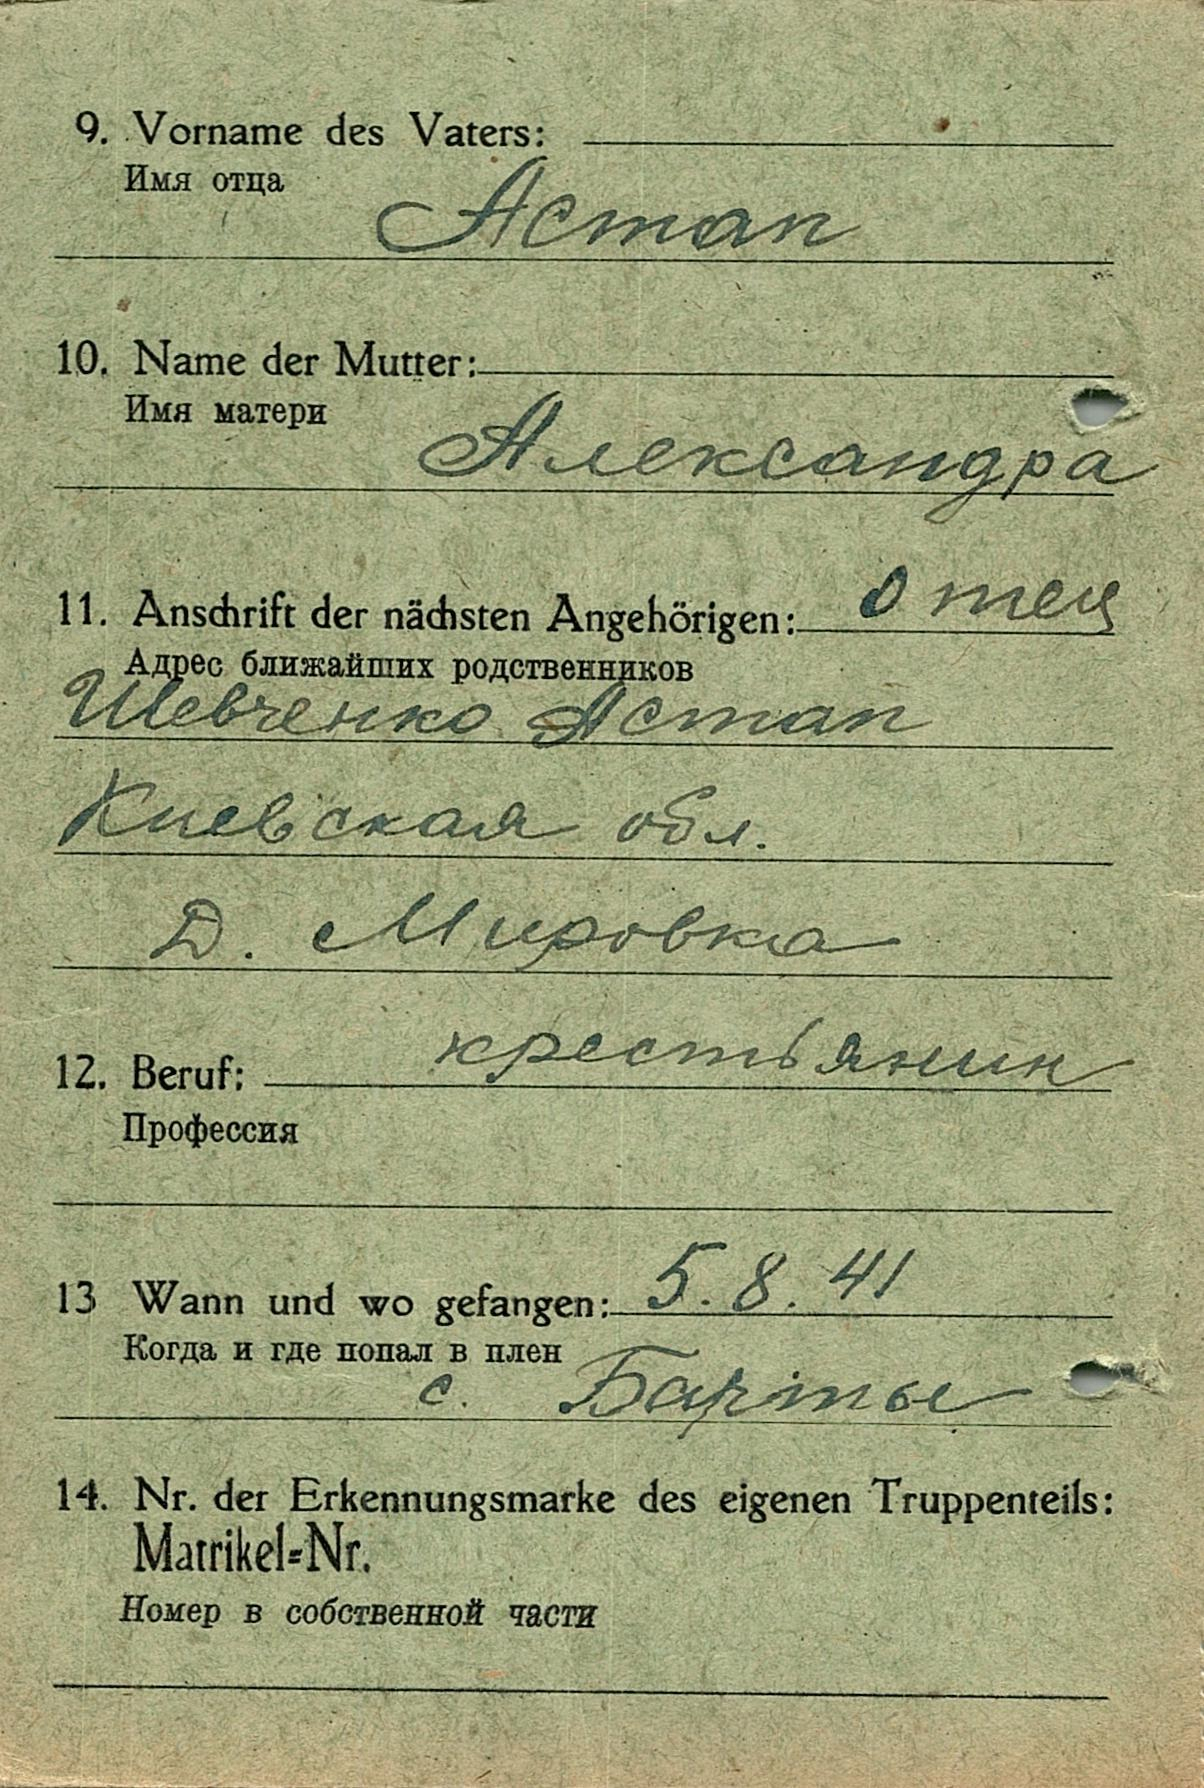 9. Vorname des Vaters:
Имя отца
Астап
10. Name der Mutter:
Имя матери
Александра
11. Anschrift der nächsten Angehörigen: отец
Адрес ближайших родственников
Шевченко Астап
Киевская обл.
Д. Мировка
12. Beruf: крестьянин
Профессия
13 Wann und wo gefangen: 5.8.41
Когда и где попал в плен
с.
14. Nr. der Erkennungsmarke des eigenen Truppenteils:
Matrikel=Nr.
Номер в собственной части